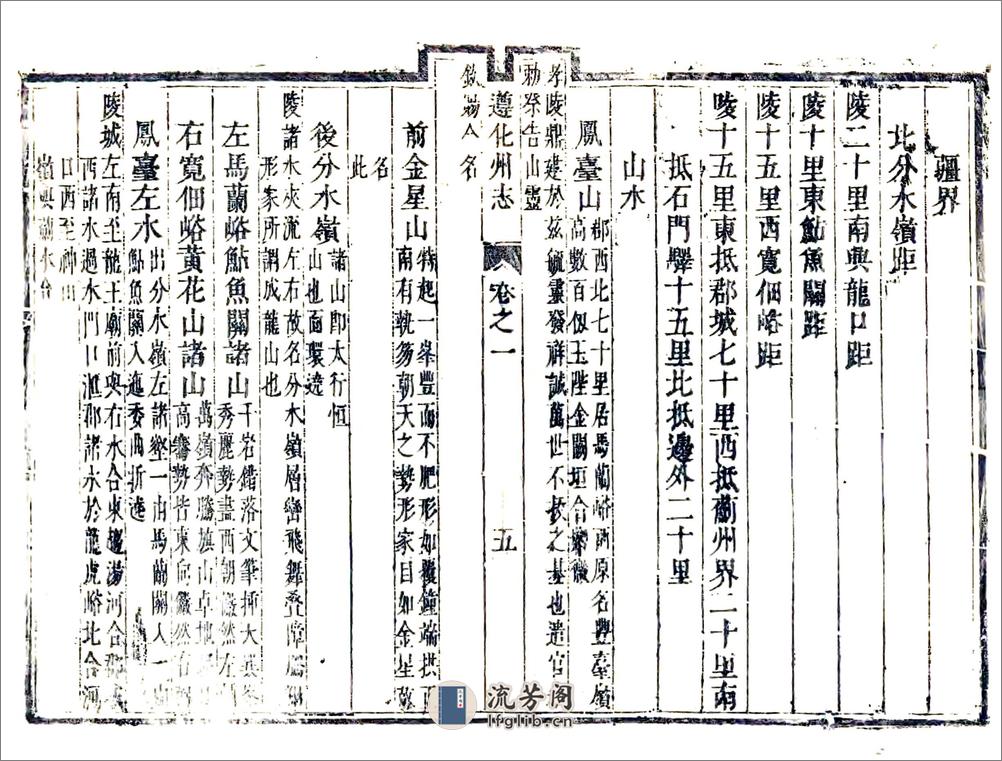 疆界
北分水嶺距
陵二十里南興龍口距
陵十里東鮎魚關距
陵十五里西寬佃峪距
陵十五里東抵郡城七十里西抵薊州界二十里南
抵石門驛十五里北抵邊外二十里
山水
鳳臺山郡西北七十里居馬蘭峪西原名豐臺嶺
高數百仭玉陛金闕垣合紫微
孝陵鼎建於玆毓靈發祥誠萬世不拔之基也遣官
勅祭告山靈
遵化州志
卷之一
五
欽易今名
前金星山特起一峯豐而不肥形如覆鐘端拱正
南有執笏朝天之勢形家目如金星故
名
此
後分水嶺諸山卽太行恒
山也面環遶
陵諸水夾流左右故名分水嶺層巒飛舞疊
形家所謂成龍山也
左馬蘭峪鮎魚關諸山千岩錯落文筆揷天
秀麗勢盡西朝儼然左
右寬佃峪黃花山諸山萬嶺奔騰旗山卓地
高騫勢皆東向儼然右
鳳臺左水出分水嶺左諸壑一由馬蘭關入一由
鮎魚關入逶委曲折遶
陵城左南至龍王廟前與右水合東
西諸水過水門口滙郡諸水於龍虎峪北合河
口西至
流芳阁
lfglib.cn